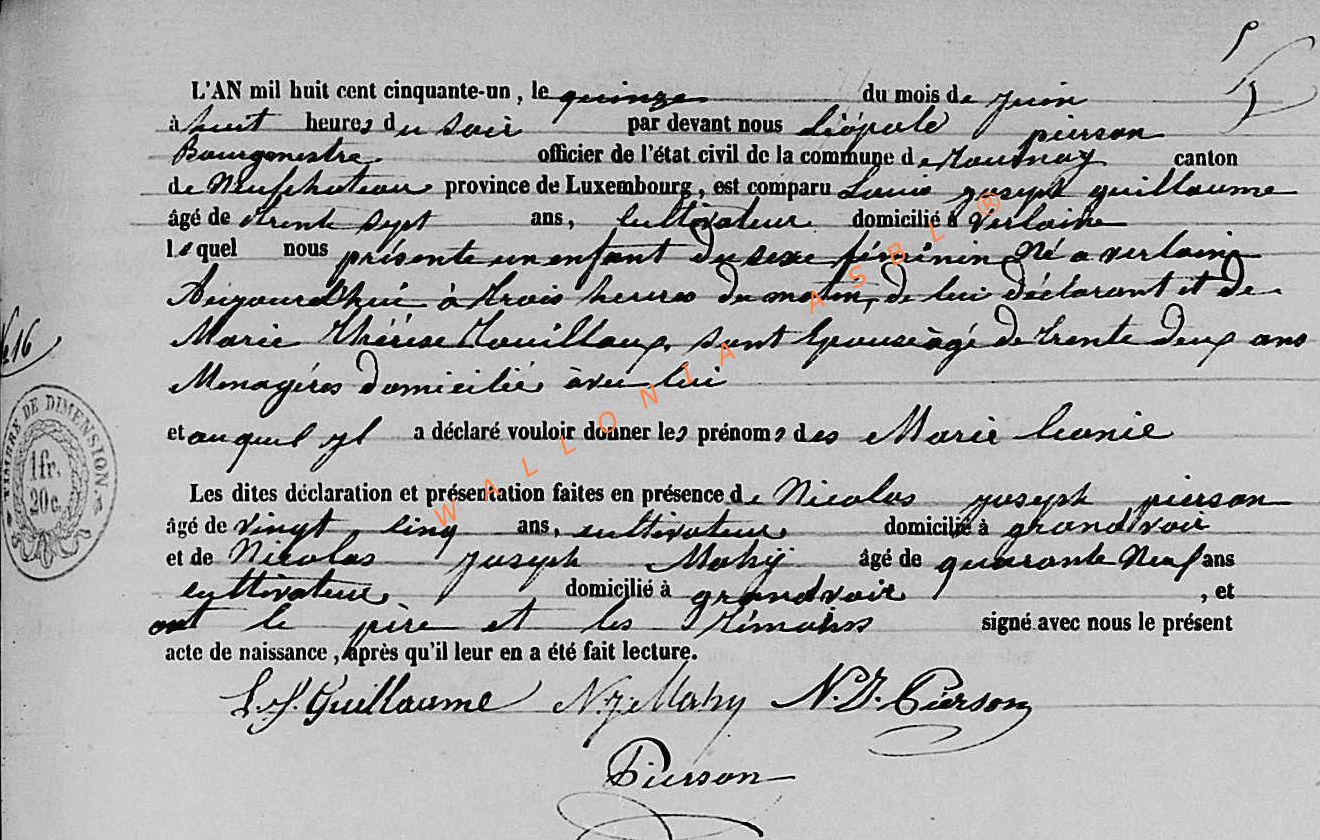 L'AN mil huit cent cinquante-un, le quinze du mois de Juin
à huit heures du soir par devant nous Léopole pierson
Bourgmestre officier de l'état civil de la commune de Tournay canton
de Neufchateau province de Luxembourg, est comparu Louis joseph guillaume
âgé de trente sept ans, cultivateur domicilié à Verlaine
lequel nous présente un enfant du sexe féminin Né a verlaine
Aujourd'hui à trois heures du matin, de lui déclarant et de
Marie Thérèse Touillaux, sont Epouse âgé de trente deux ans
Menagères domicilié avec lui
et auquel yl a déclaré vouloir donner les prénoms des Marie Leonie
Les dites déclaration et présentation faites en présence de Nicolas joseph pierson
âgé de vingt cinq ans, cultivateur domicilié à grandvoir
et de Nicolas joseph Mahÿ âgé de quarante Neuf ans
cultivateur domicilié à grandvoir, et
ont le père et les témoins signé avec nous le présent
acte de naissance, après qu'il leur en a été fait lecture.
L. J. Guillaume N. J. Mahy N. J. Pierson
Pierson
5
No 16
TIMBRE DE DIMENSION
1 fr.
20 c.
WALLONIA ASBL ®